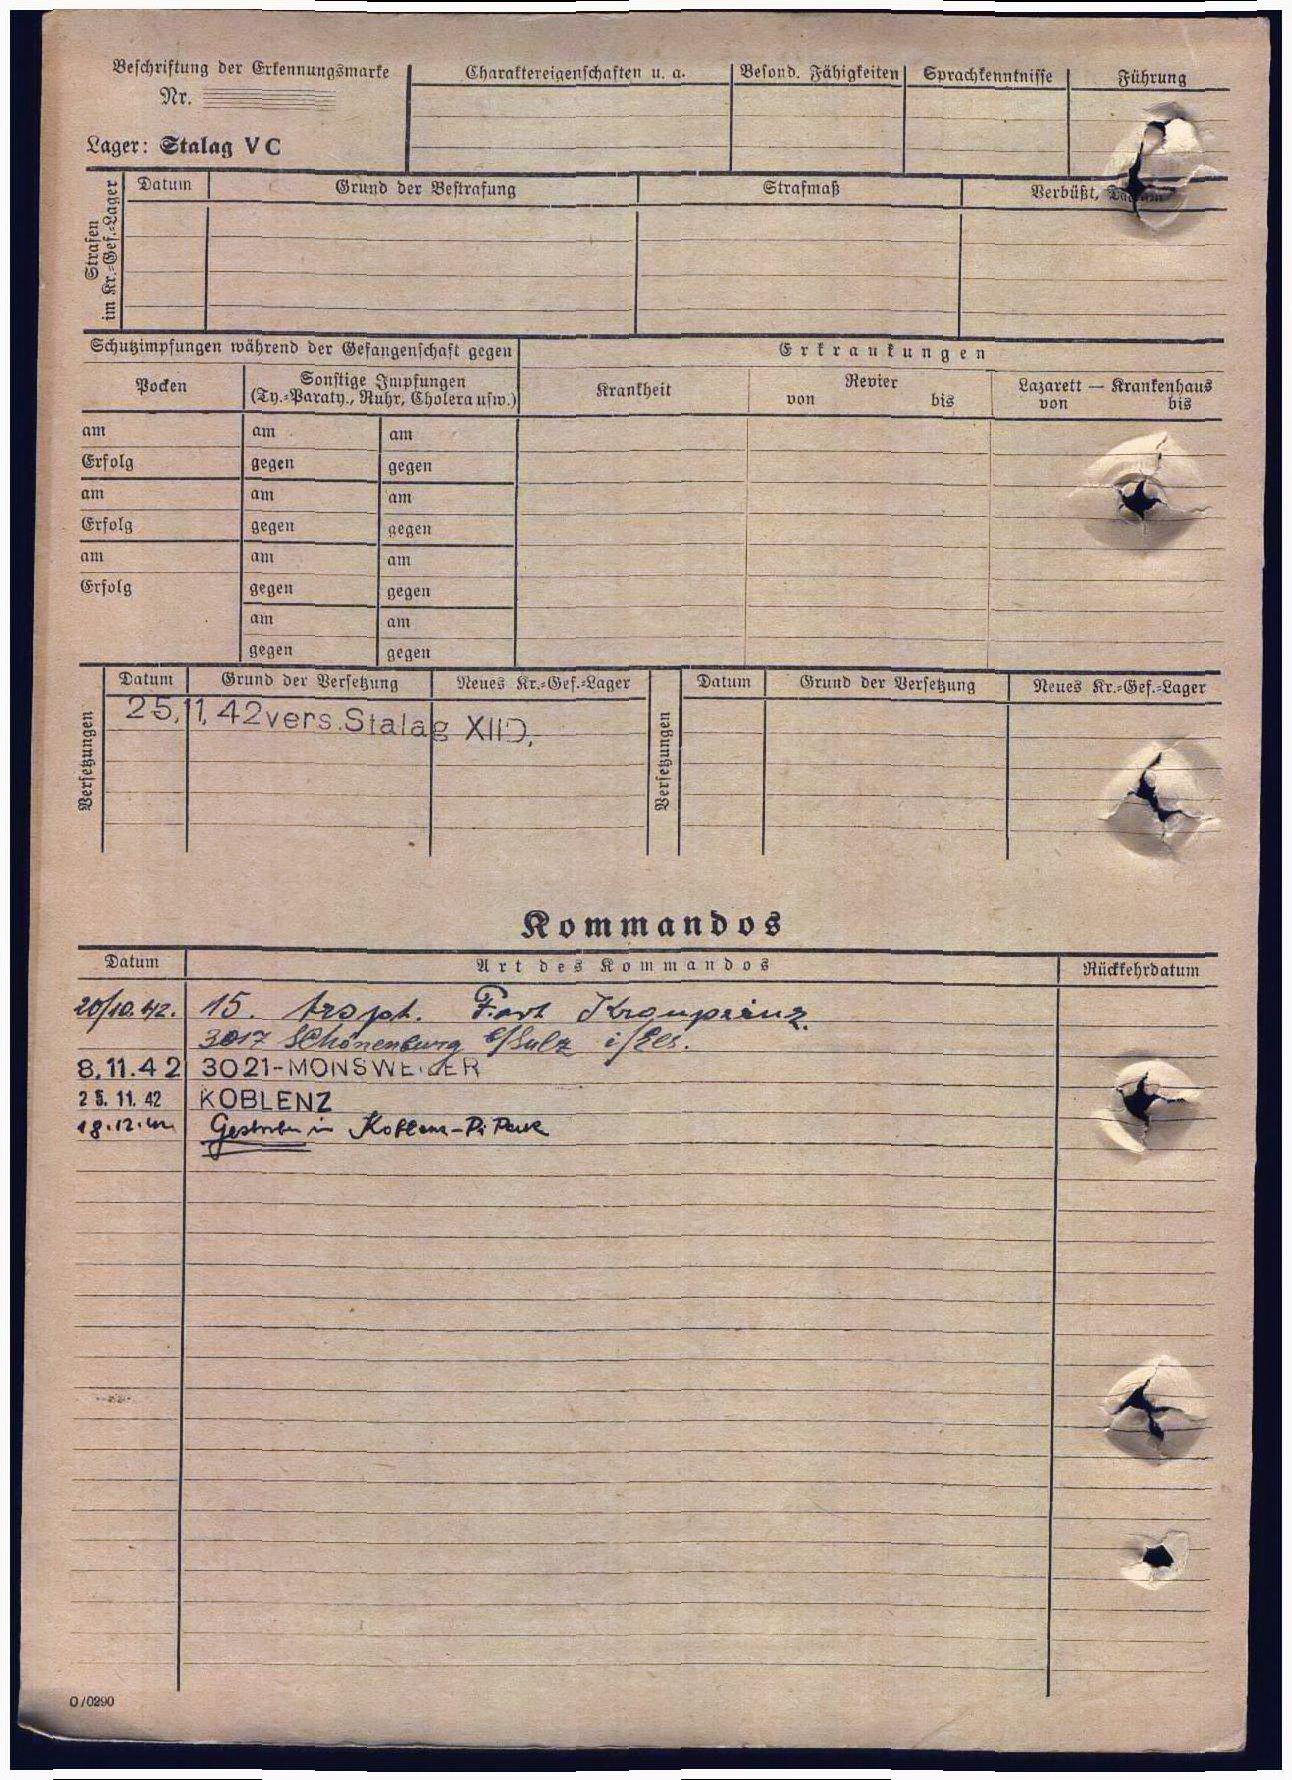 Beschriftung der Erkennungsmarke
Nr.
Lager: Stalag V C
Charaktereigenschaften u. a.
Besond. Fähigkeiten
Sprachkenntnisse
Führung
Strafen
im Kr.=Gef.=Lager
Datum
Grund der Bestrafung
Strafmaß
Verbüßt, Datum
Schutzimpfungen während der Gefangenschaft gegen
Erkrankungen
Pocken
Sonstige Impfungen
(Ty.=Paraty., Ruhr, Cholera usw.)
Krankheit
Revier
von bis
Lazarett — Krankenhaus
von bis
am am am
Erfolg gegen gegen
am am am
Erfolg gegen gegen
am am am
Erfolg gegen gegen
am am
gegen gegen
Versetzungen
Datum Grund der Versetzung Neues Kr.=Gef.=Lager
25.11.42 vers. Stalag XIID.
Versetzungen
Datum Grund der Versetzung Neues Kr.=Gef.=Lager
Kommandos
Datum Art des Kommandos Rückkehrdatum
20/10.42. 15. Fort Kronprinz.
3017 Schönenburg b/Sulz i/Els.
8.11.42 3021-MONSWEILER
25.11.42 KOBLENZ
18.12.42 Gestorben in Koblenz-Pi Park
O/0290